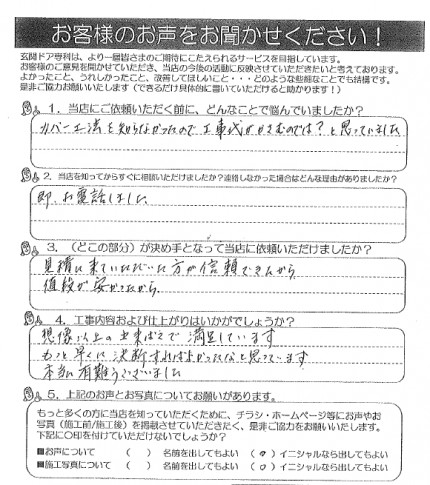 お客様のお声をお聞かせください！
玄関ドア専科は、より一層皆さまのご期待にこたえられるサービスを目指しています。
お客様のご意見を聞かせていただき、当店の今後の活動に反映させていただきたいと考えております。
よかったこと、うれしかったこと、改善してほしいこと・・・どのような些細なことでも結構です。
是非ご協力お願いいたします（できるだけ具体的に書いていただけると助かります！）
1．当店にご依頼いただく前に、どんなことで悩んでいましたか？
カバー工法を知らなかったので工事代がかさむのでは？と思っていました
2．当店を知ってからすぐに相談いただけましたか？連絡しなかった場合はどんな理由がありましたか？
即、お電話しました
3．（どこの部分）が決め手となって当店に依頼いただけましたか？
見積に来ていただいた方が信頼できたから
値段が安かったから
4．工事内容および仕上がりはいかがでしょうか？
想像以上の出来ばえで満足しています
もっと早くに決断すればよかったなと思っています
本当に有難うございました
5．上記のお声とお写真についてお願いがあります。
もっと多くの方に当店を知っていただくために、チラシ・ホームページ等にお声やお
写真（施工前/施工後）を掲載させていただきたく、是非ご協力をお願いいたします。
下記に〇印を付けていただけないでしょうか？
■お声について （ ） 名前を出してもよい （○）イニシャルなら出してもよい
■施工写真について （ ） 名前を出してもよい （○）イニシャルなら出してもよい